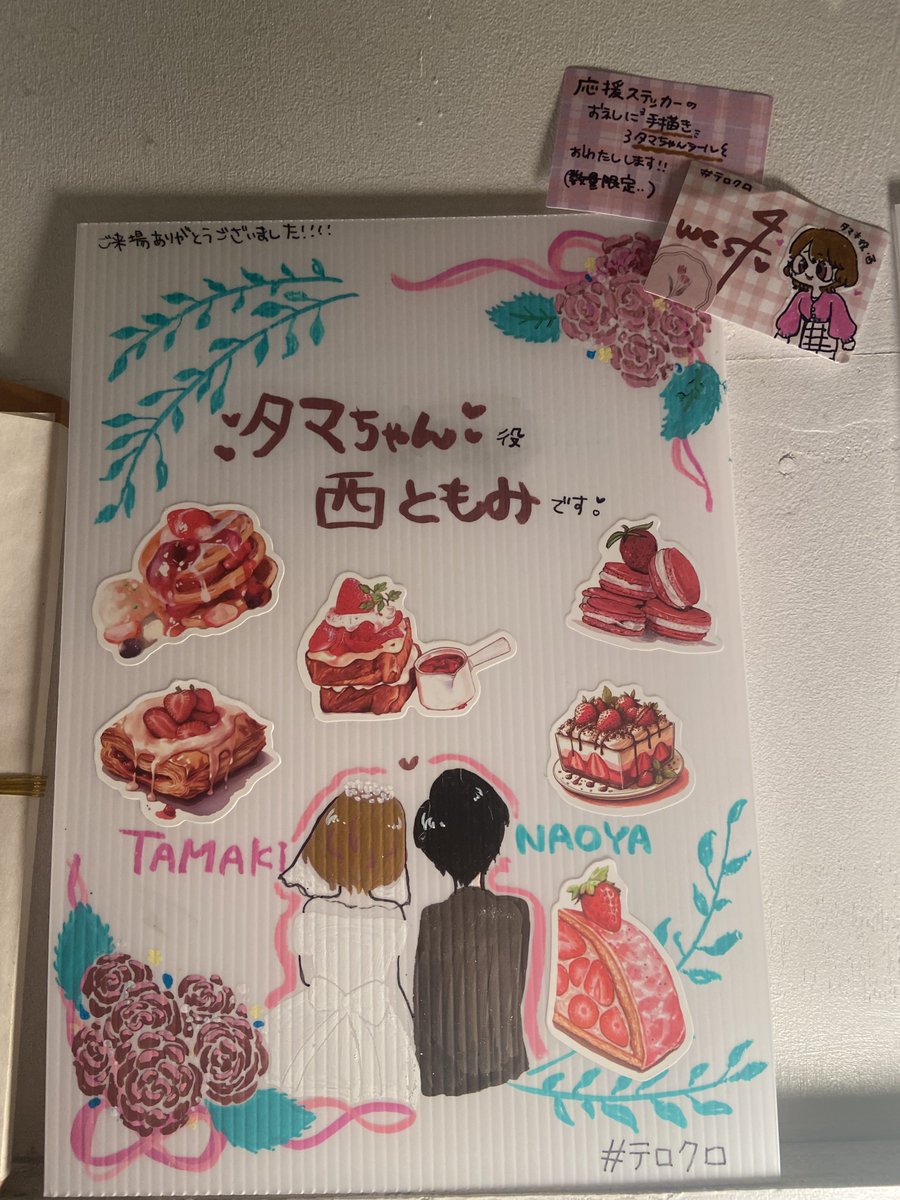 応援ステッカーの
お返しに手描き
タマちゃんシールを
おわたしします!!
(数量限定..)
#テロクロ
west
タマキ役 西
ご来場ありがとうございました!!!!
タマちゃん役
西ともみです。
TAMAKI
NAOYA
#テロクロ